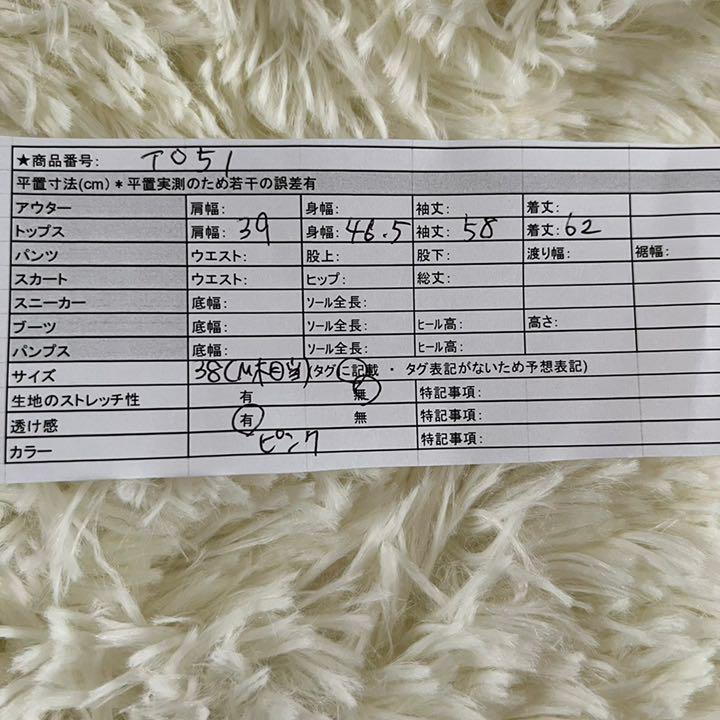 ★商品番号: T051
平置寸法(cm)*平置実測のため若干の誤差有
アウター 肩幅: 身幅: 袖丈: 着丈:
トップス 肩幅: 39 身幅: 46.5 袖丈: 58 着丈: 62
パンツ ウエスト: 股上: 股下: 渡り幅: 裾幅:
スカート ウエスト: ヒップ: 総丈:
スニーカー 底幅: ソール全長:
ブーツ 底幅: ソール全長: ヒール高: 高さ:
パンプス 底幅: ソール全長: ヒール高:
サイズ 38(M相当)(タグに記載 ・ タグ表記がないため予想表記)
生地のストレッチ性 有 無 特記事項:
透け感 有 無 特記事項:
カラー ピンク 特記事項: